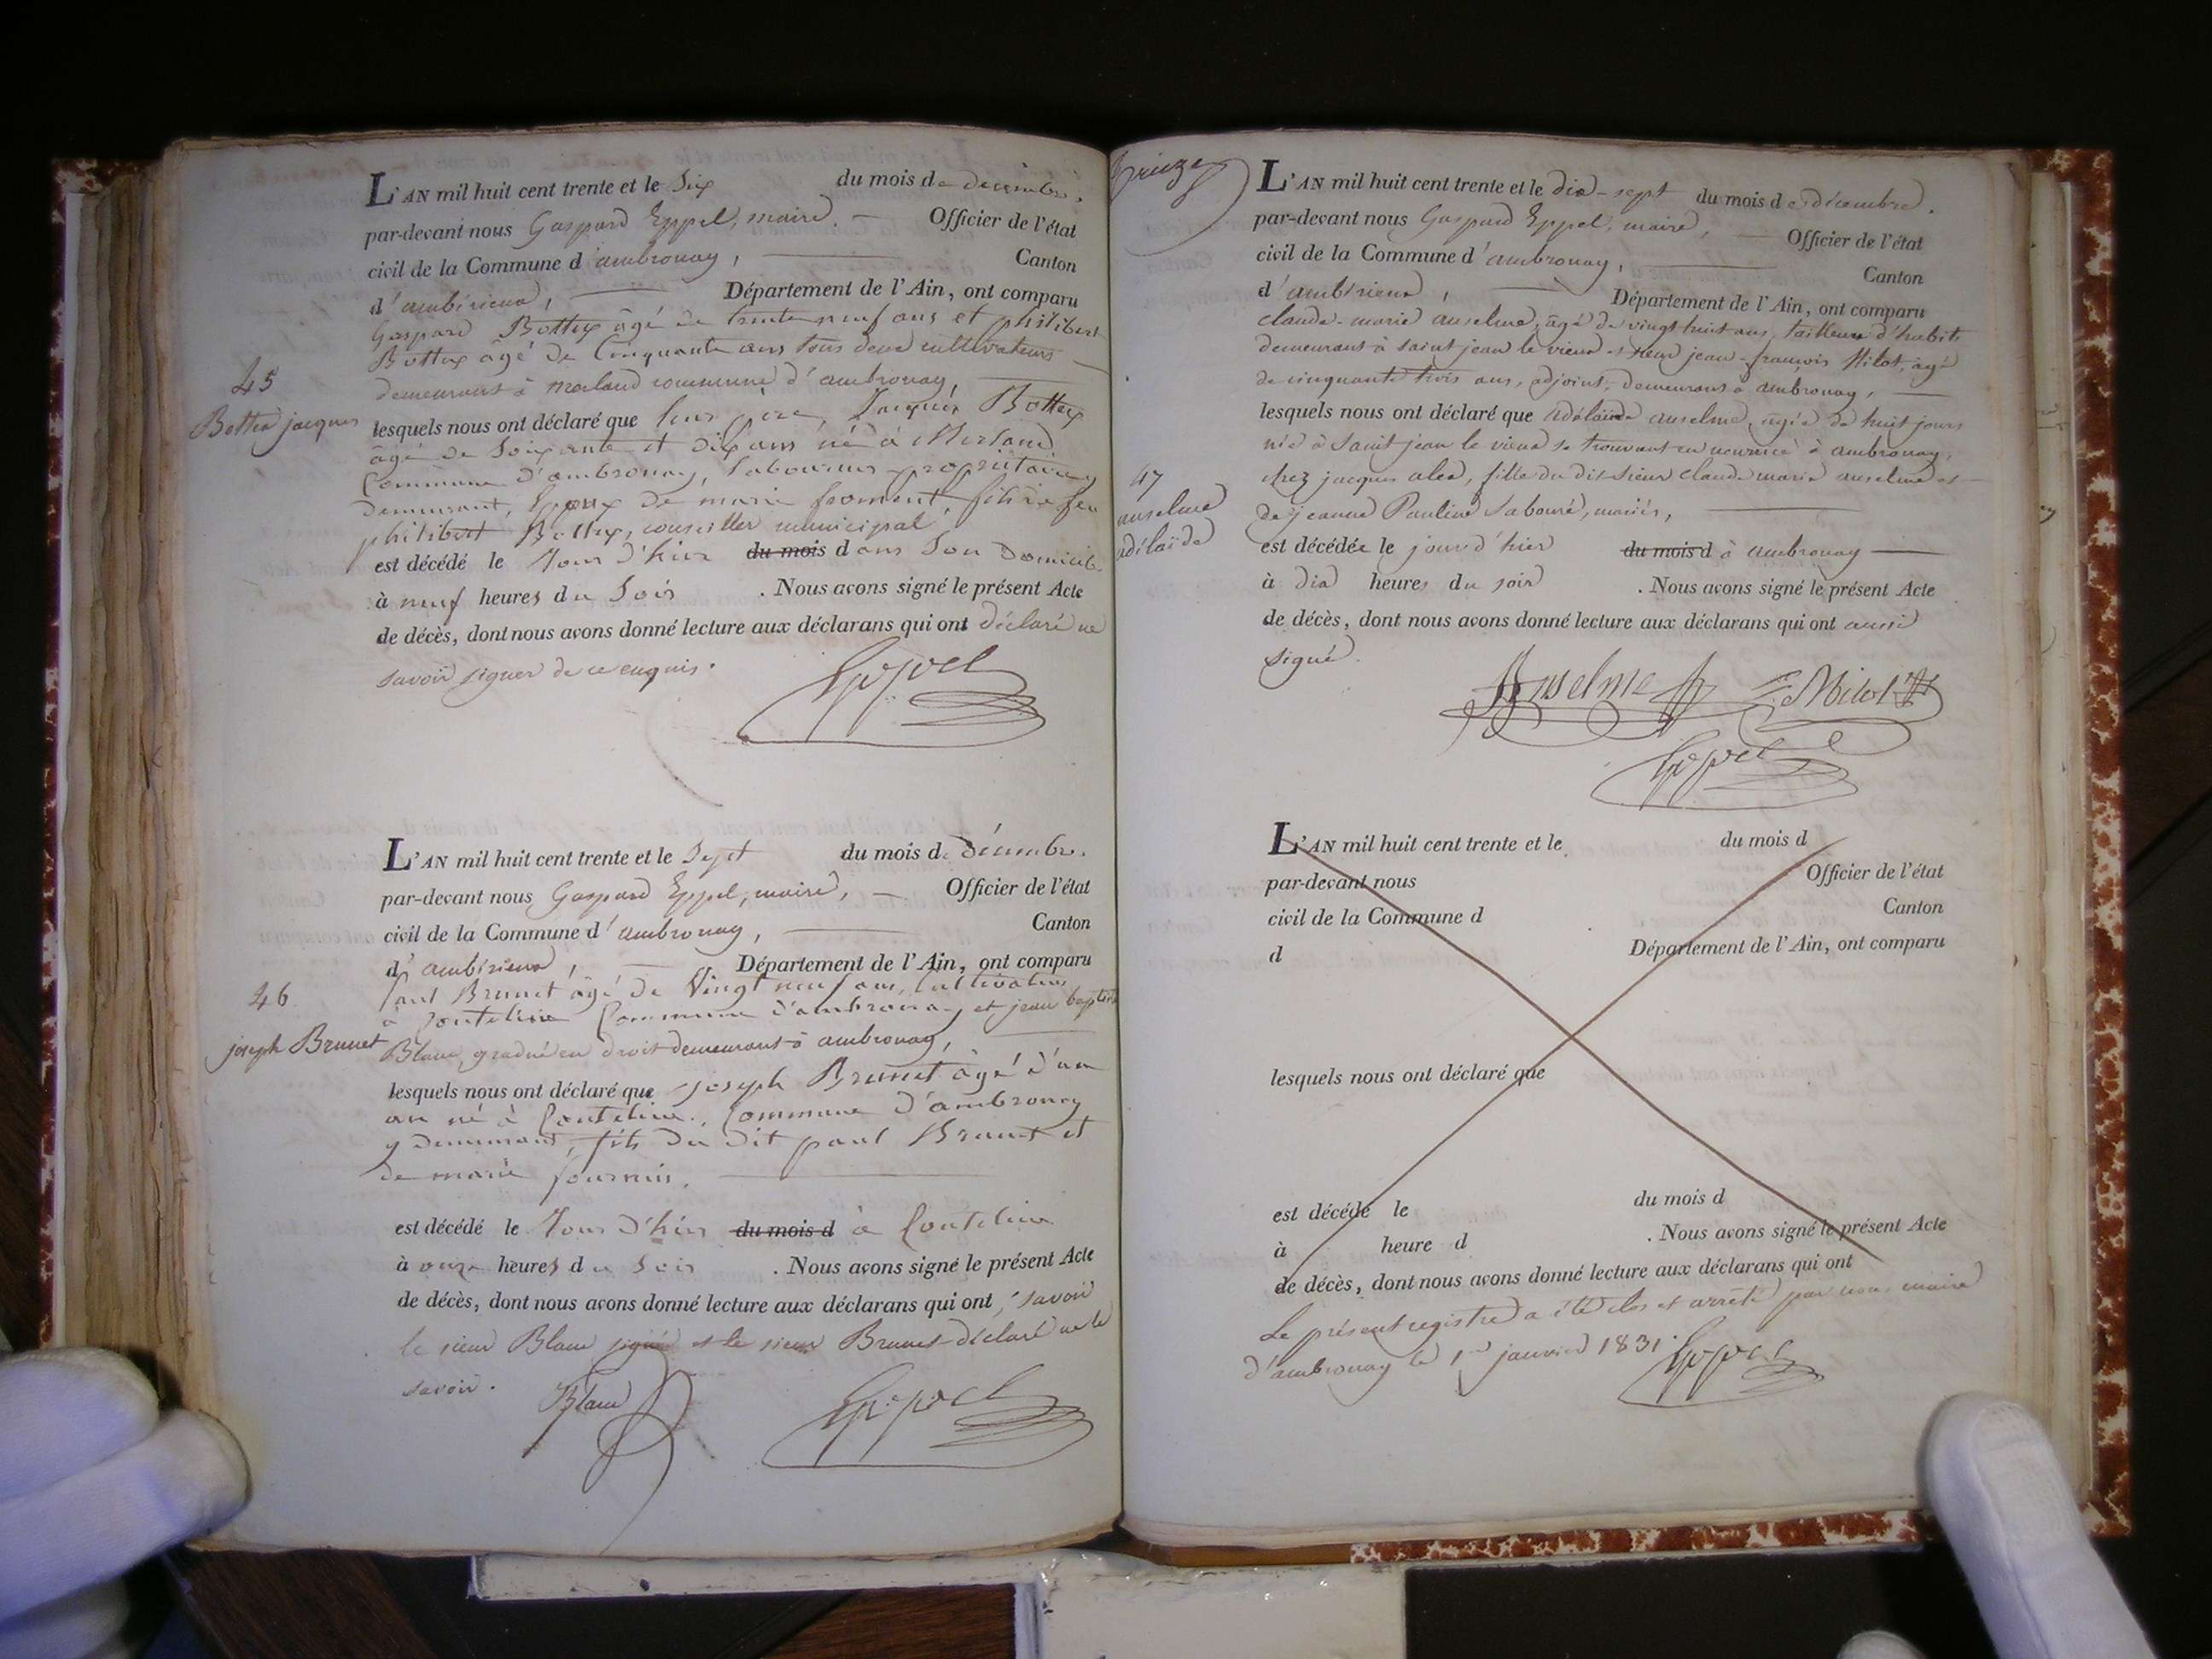 L'AN mil huit cent trente et le Six du mois de decembre.
par-devant nous Gaspard Eppel, maire, — Officier de l'état
civil de la Commune d'ambronay, — Canton
d'ambérieux, — Département de l'Ain, ont comparu
Gaspard Bottex âgé de trente neuf ans et philibert
Bottex âgé de Cinquante ans tous deux cultivateurs
demeurant à merland commune d'ambronay,
45
Bottex jacques
lesquels nous ont déclaré que leur père, Jacques Bottex
âgé de Soixante et dix ans né à Merland
Commune d'ambronay, Laboureur propriétaire y
demeurant, Epoux de marie froment fils de feu
philibert Bottex, conseiller municipal
est décédé le Jour d'hier du mois dans Son Domicile
à neuf heures du Soir . Nous avons signé le présent Acte
de décès, dont nous avons donné lecture aux déclarans qui ont déclaré ne
savoir signer de ce enquis.
Eppel
L'AN mil huit cent trente et le Sept du mois de Décembre.
par-devant nous Gaspard Eppel, maire, — Officier de l'état
civil de la Commune d'ambronay, — Canton
d'ambérieux, — Département de l'Ain, ont comparu
46
joseph Brunet
Paul Brunet âgé de Vingt neuf ans, Cultivateur
à Commune d'ambronay et jean baptiste
Blanc, gradué en droit demeurant à ambronay,
lesquels nous ont déclaré que joseph Brunet âgé d'un
an né à Commune d'ambronay
y demeurant, fils du dit paul Brunet et
de marie fournier.
est décédé le Jour d'hier du mois d à
à onze heures du Soir . Nous avons signé le présent Acte
de décès, dont nous avons donné lecture aux déclarans qui ont, savoir
le sieur Blanc signé et le sieur Brunet déclaré ne le
savoir.
Blanc
Eppel
L'AN mil huit cent trente et le dix-sept du mois de décembre.
par-devant nous Gaspard Eppel, maire, — Officier de l'état
civil de la Commune d'ambronay, — Canton
d'ambérieux, — Département de l'Ain, ont comparu
claude-marie anselme, âgé de vingt huit ans, tailleur d'habits
demeurant à saint jean le vieux et sieur jean-françois Milot, âgé
de cinquante trois ans, adjoint, demeurant à ambronay,
lesquels nous ont déclaré que adélaïde anselme, agée de huit jours
née à Saint jean le vieux se trouvant en nourrice à ambronay,
47
anselme
adélaïde
chez jacques alex, fille du dit sieur claude marie anselme et
de jeanne Pauline Sabouré, mariés,
est décédée le jour d'hier du mois d à ambronay
à dix heures du soir . Nous avons signé le présent Acte
de décès, dont nous avons donné lecture aux déclarans qui ont aussi
signé.
Anselme Milot
Eppel
L'AN mil huit cent trente et le du mois d
par-devant nous Officier de l'état
civil de la Commune d Canton
d Département de l'Ain, ont comparu
lesquels nous ont déclaré que
est décédé le du mois d
à heure d . Nous avons signé le présent Acte
de décès, dont nous avons donné lecture aux déclarans qui ont
Le présent registre a été clos et arrêté par nous maire
d'ambronay le 1er janvier 1831.
Eppel